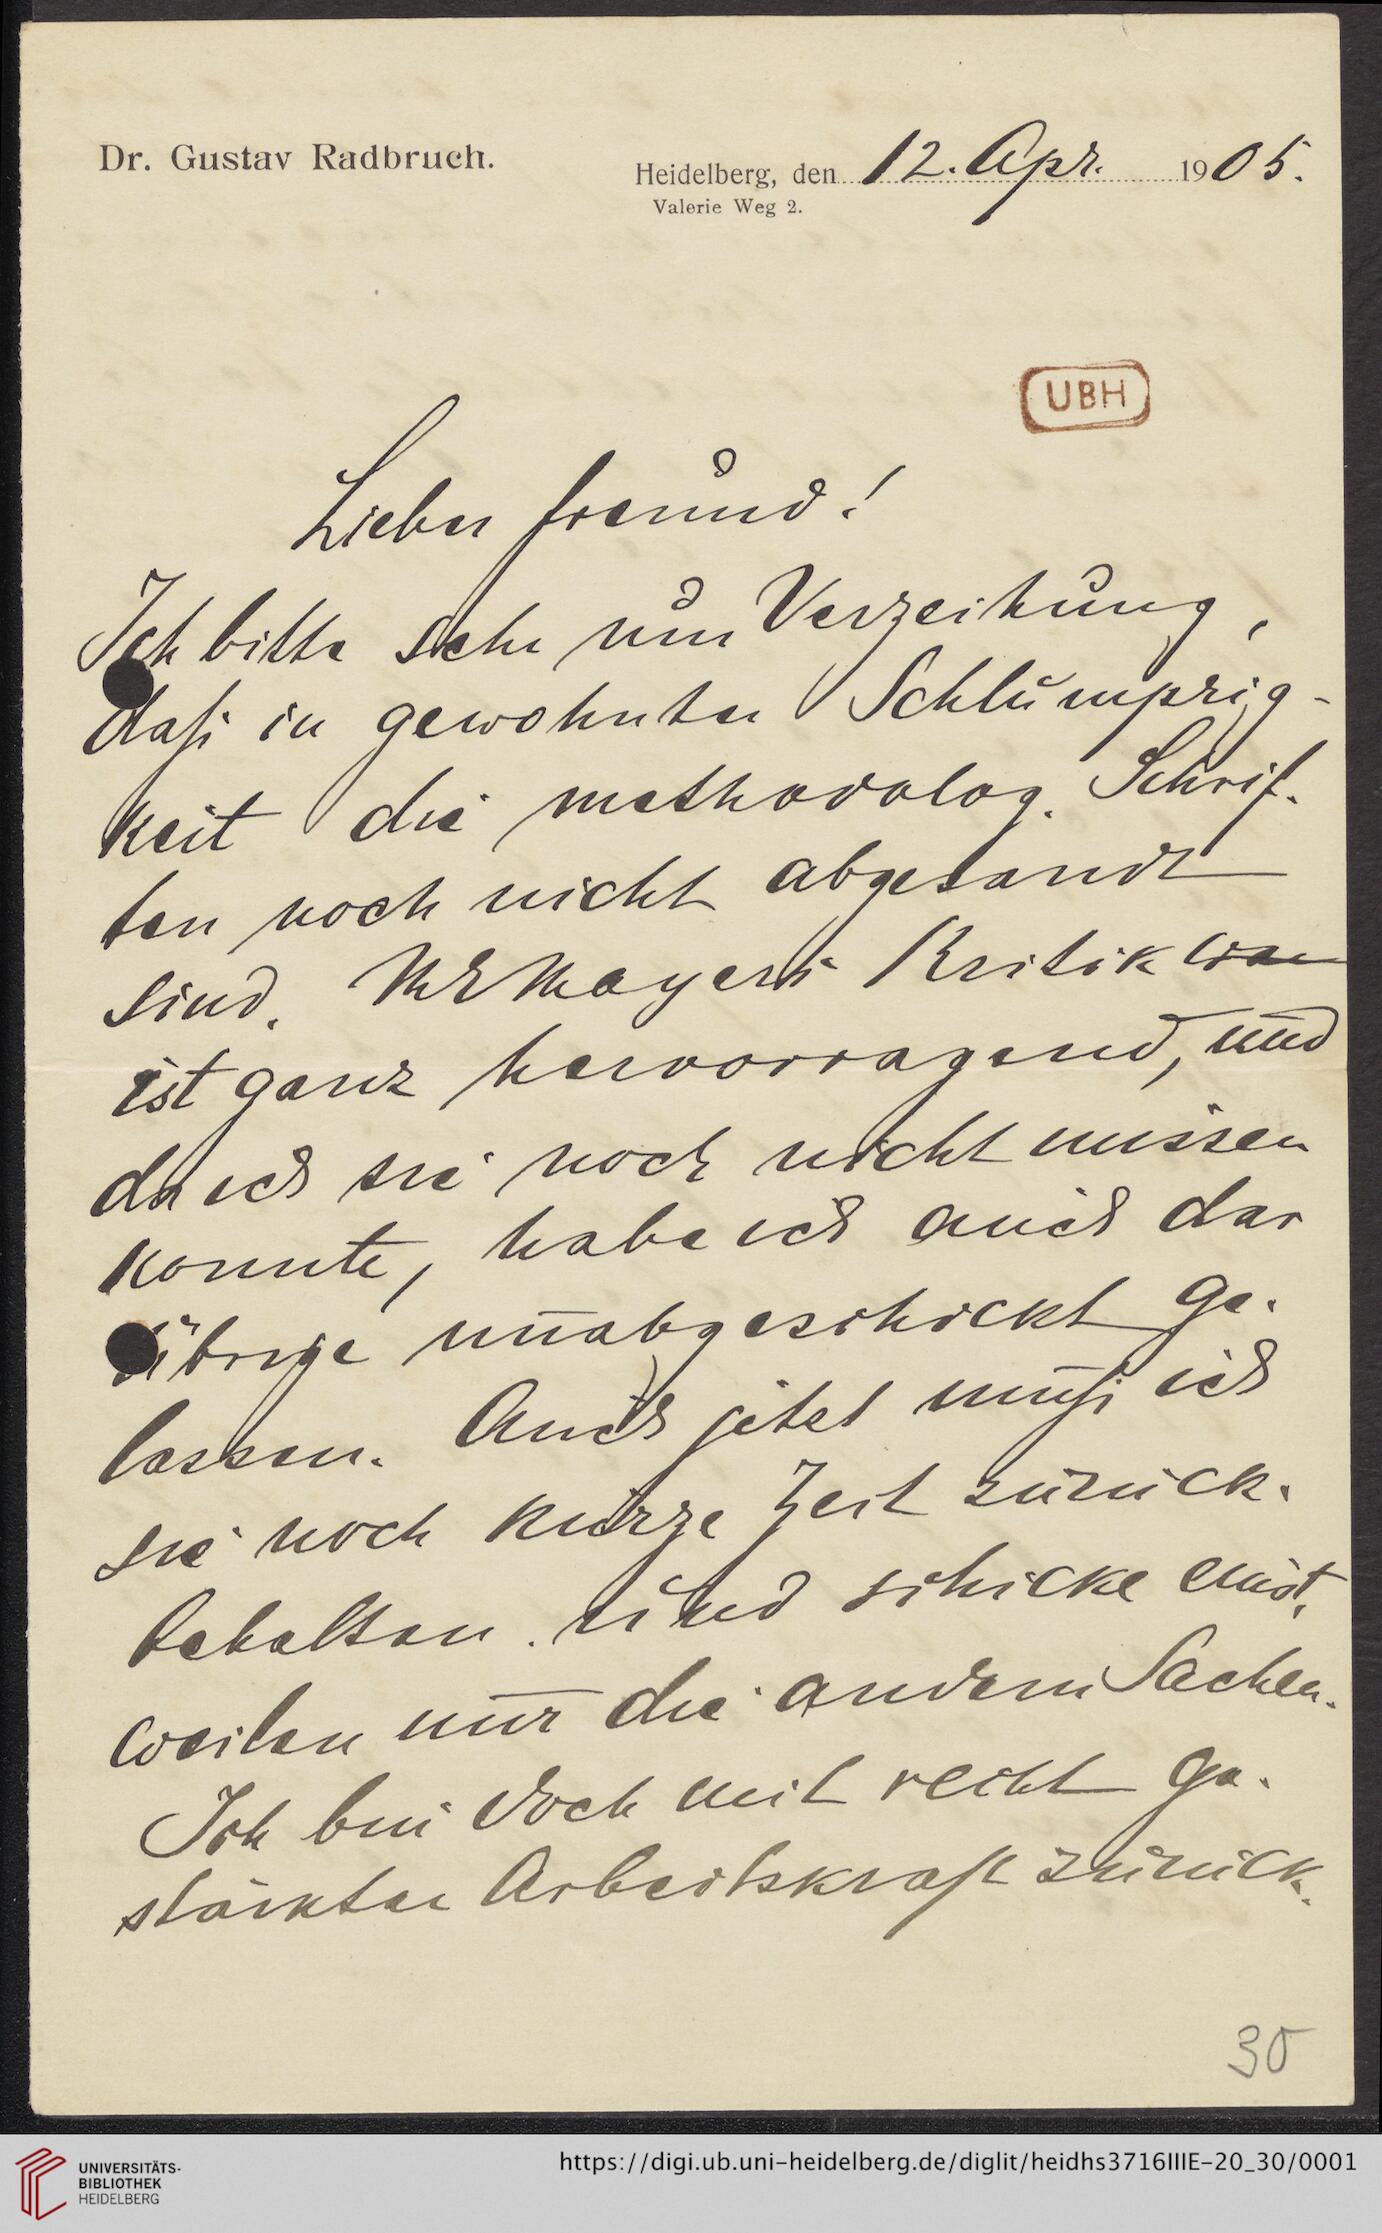 Dr. Gustav Radbruch.
Heidelberg, den 12. Apr. 1905.
Valerie Weg 2.
UBH
Lieber Freund!
Ich bitte sehr um Verzeihung,
daß in gewohnter Schlumprig-
keit die methodolog. Schrif-
ten noch nicht abgesandt
sind. M E Mayers Kritik war
ist ganz hervorragend, und
da ich sie noch nicht missen
konnte, habe ich auch das
übrige unabgeschickt ge-
lassen. Auch jetzt muß ich
sie noch kurze Zeit zurück-
behalten und schicke einst-
weilen nur die andern Sachen.
Ich bin doch mit recht ge-
stärkter Arbeitskraft zurück-
30
UNIVERSITÄTS-
BIBLIOTHEK
HEIDELBERG
https://digi.ub.uni-heidelberg.de/diglit/heidhs3716IIIE-20_30/0001